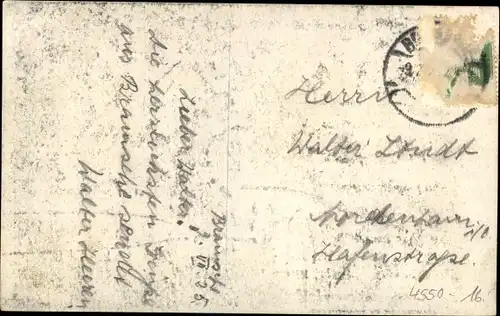 Bramsche
2. VII 25
Lieber Walter.
Die herzlichsten Grüße
aus Bramsche sendet
Walter
Herrn
Walter
Nordenham i/O
Hafenstraße.
4550 16.